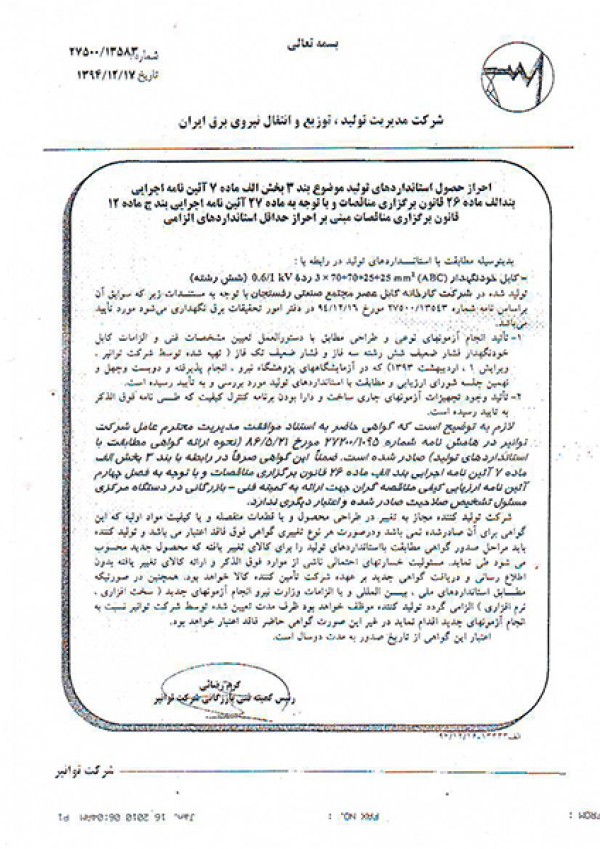 بسمه تعالی
شماره: ۲۷۵۰۰/۱۳۵۸۳
تاریخ ۱۳۹۴/۱۲/۱۷
شرکت مدیریت تولید، توزیع و انتقال نیروی برق ایران
احراز حصول استانداردهای تولید موضوع بند ۳ بخش الف ماده ۷ آئین نامه اجرایی
بندالف ماده ۲۶ قانون برگزاری مناقصات و با توجه به ماده ۲۷ آئین نامه اجرایی بند ج ماده ۱۲
قانون برگزاری مناقصات مبنی بر احراز حداقل استانداردهای الزامی
بدینوسیله مطابقت با استانداردهای تولید در رابطه با :
- کابل خودنگهدار (ABC) 3 × 70+70+25+25 mm² ردهٔ 0.6/1 kV (شش رشته)
تولید شده در شرکت کارخانه کابل عصر مجتمع صنعتی رفسنجان با توجه به مستندات زیر که سوابق آن
براساس نامه شماره ۲۷۵۰۰/۱۳۵۴۳ مورخ ۹۴/۱۲/۱۶ در دفتر امور تحقیقات برق نگهداری می‌شود مورد تأیید
می‌باشد.
۱- تأئید انجام آزمونهای نوعی و طراحی مطابق با دستورالعمل تعیین مشخصات فنی و الزامات کابل
خودنگهدار فشار ضعیف شش رشته سه فاز و فشار ضعیف تک فاز ( تهیه شده توسط شرکت توانیر ،
ویرایش ۱ ، اردیبهشت ۱۳۹۳) که در آزمایشگاههای پژوهشگاه نیرو ، انجام پذیرفته و دویست وچهل و
نهمین جلسه شورای ارزیابی و مطابقت با استانداردهای تولید مورد بررسی و به تأیید رسیده است.
۲- تأئید وجود تجهیزات آزمونهای جاری ساخت و دارا بودن برنامه کنترل کیفیت که طی نامه فوق الذکر
به تایید رسیده است.
لازم به توضیح است که گواهی حاضر به استناد موافقت مدیریت محترم عامل شرکت
توانیر در هامش نامه شماره ۲۷۲۰۰/۱۰۹۵ مورخ ۸۶/۵/۲۱ (نحوه ارائه گواهی مطابقت با
استانداردهای تولید) صادر شده است. ضمناً این گواهی صرفاً در رابطه با بند ۳ بخش الف
ماده ۷ آئین نامه اجرایی بند الف ماده ۲۶ قانون برگزاری مناقصات و با توجه به فصل چهارم
آئین نامه ارزیابی کیفی مناقصه گران جهت ارائه به کمیته فنی - بازرگانی در دستگاه مرکزی
مسئول تشخیص صلاحیت صادر شده و اعتبار دیگری ندارد.
شرکت تولید کننده مجاز به تغییر در طراحی محصول و یا قطعات منفصله و یا کیفیت مواد اولیه که این
گواهی برای آن صادرشده نمی باشد ودرصورت هر نوع تغییری گواهی فوق فاقد اعتبار می باشد و تولید کننده
باید مراحل صدور گواهی مطابقت بااستانداردهای تولید را برای کالای تغییر یافته که محصول جدید محسوب
می شود طی نماید. مسئولیت خسارتهای احتمالی ناشی از موارد فوق الذکر و ارائه کالای تغییر یافته بدون
اطلاع رسانی و دریافت گواهی جدید بر عهده شرکت تأمین کننده کالا خواهد بود. همچنین در صورتیکه
مطابق استانداردهای ملی ، بین المللی و یا الزامات وزارت نیرو انجام آزمونهای جدید ( سخت افزاری ،
نرم افزاری ) الزامی گردد تولید کننده موظف خواهد بود ظرف مدت تعیین شده توسط شرکت توانیر نسبت به
انجام آزمونهای جدید اقدام نماید در غیر این صورت گواهی حاضر فاقد اعتبار خواهد بود.
اعتبار این گواهی از تاریخ صدور به مدت دوسال است.
کرم رضائی
رئیس کمیته فنی بازرگانی شرکت توانیر
شرکت توانیر
FROM :
FAX NO. :
Jan. 16 2010 06:04AM P1